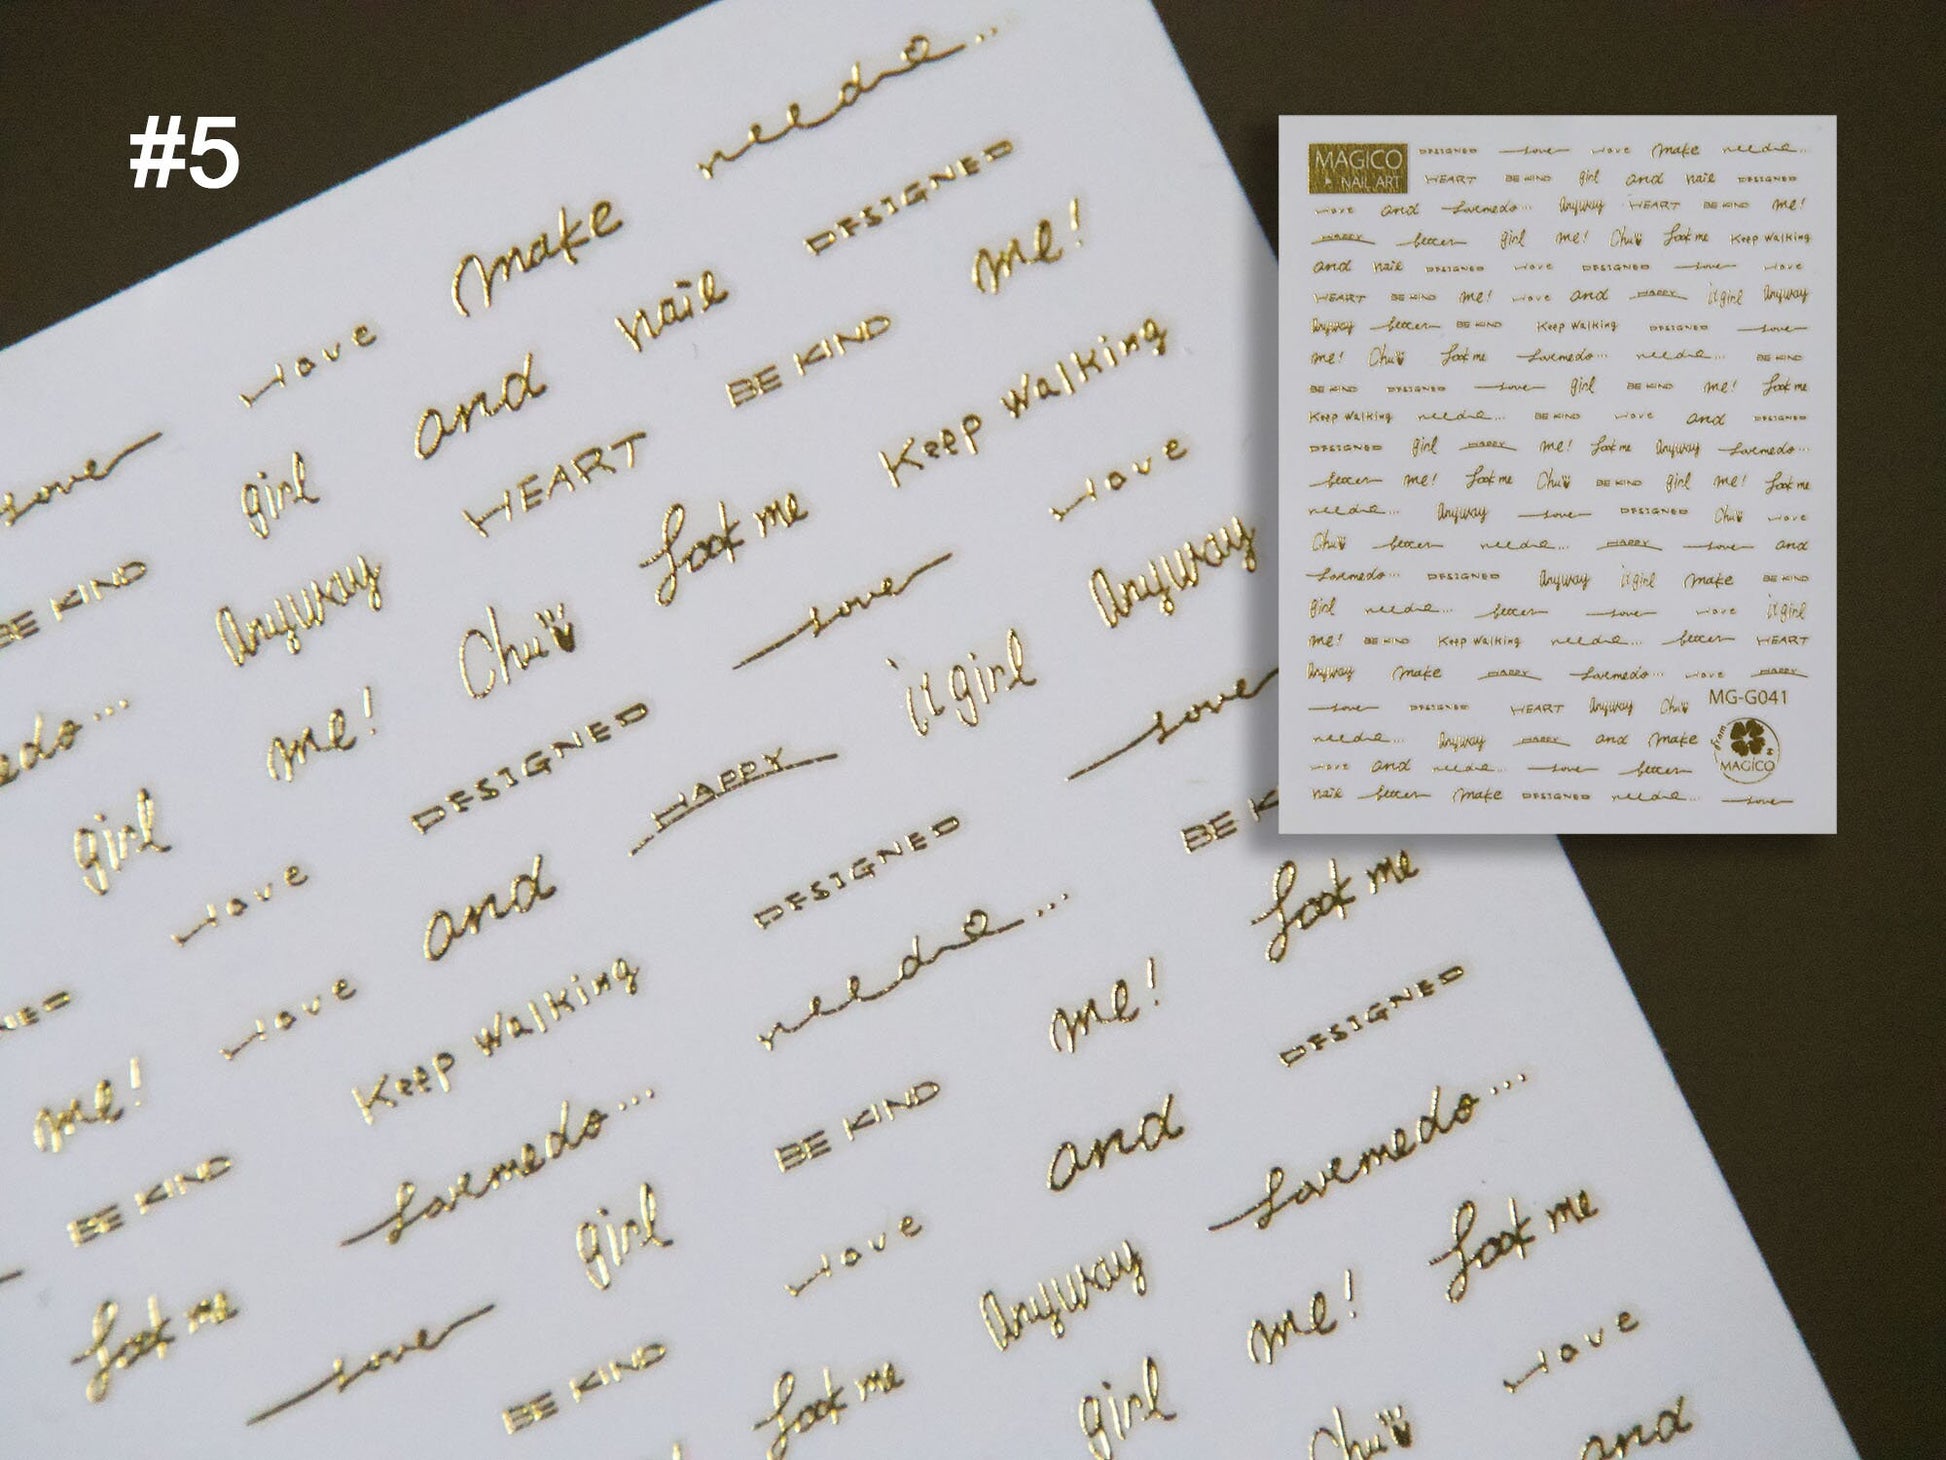 #5
needme...
make DESIGNED
love nail me!
and BE KIND
love girl HEART Keep Walking
BE KIND Anyway Look me love
Chu love Anyway
me! it girl
girl DESIGNED HAPPY love
love and DESIGNED BE
love needme... Look me
me! Keep Walking me! DESIGNED
BE KIND Lovemedo... BE KIND and Lovemedo...
Look me girl love Look me
love Anyway me!
BE KIND Look me girl love
Chu and
MAGICO
NAIL ART
DESIGNED love love make needme...
HEART BE KIND girl and nail DESIGNED
love and Lovemedo... Anyway HEART BE KIND me!
HAPPY better girl me! Chu Look me Keep Walking
and nail DESIGNED love DESIGNED love love
HEART BE KIND me! love and HAPPY it girl Anyway
Anyway better BE KIND Keep Walking DESIGNED love
me! Chu Look me Lovemedo... needme... BE KIND
BE KIND DESIGNED love girl BE KIND me! Look me
Keep Walking needme... BE KIND love and DESIGNED
DESIGNED girl HAPPY me! Look me Anyway Lovemedo...
better me! Look me Chu BE KIND girl me! Look me
needme... Anyway love DESIGNED Chu love
Chu better needme... HAPPY love and
Lovemedo... DESIGNED Anyway it girl make BE KIND
girl needme... better love love it girl
me! BE KIND Keep Walking needme... better HEART
Anyway make HAPPY Lovemedo... love HAPPY
MG-G041
love DESIGNED HEART Anyway Chu
needme... Anyway HAPPY and make
love and needme... love better
nail better make DESIGNED needme... love
from
MAGICO